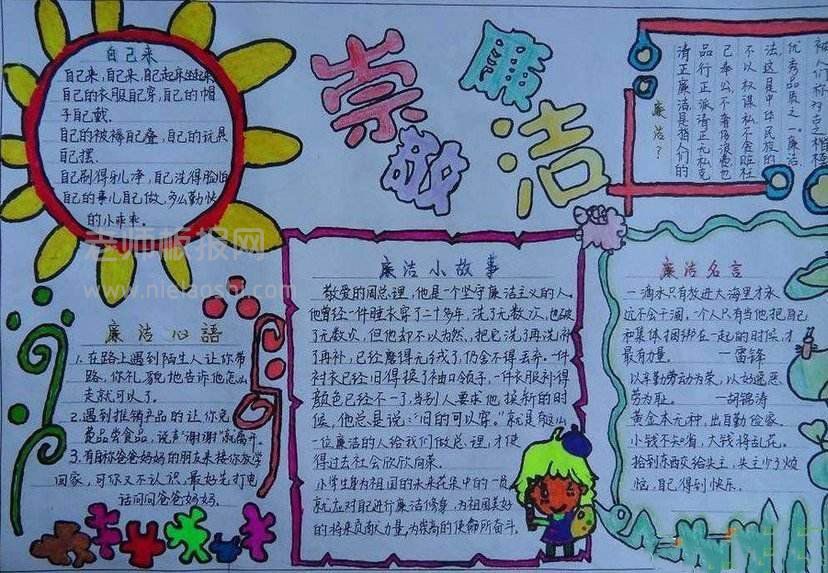 自己来
自己来,自己来,自己起床坐起来
自己的衣服自己穿,自己的帽
子自己戴.
自己的被褥自己叠,自己的玩具
自己摆.
自己刷得牙儿净,自己洗得脸怕
自己的事儿自己做,多么勤快
的小乖乖.
崇敬
廉洁
廉洁?
清正廉洁是指人们的
品行正派清正无私克
己奉公,不奢侈浪费也
不以权谋私不贪赃枉
法,这是中华民族的
优秀品质之一。廉洁
被人们称为古之楷模
老师板报网
www.nielaoshi.com
廉洁心語
1.在路上遇到陌生人让你带
路,你礼貌地告诉他怎么
走就可以了.
2.遇到推销产品的让你免
费品尝食品,说声"谢谢"就离开。
3.有自称爸爸妈妈的朋友来接你放学
回家,可你又不认识,最好先打电
话问问爸爸妈妈.
廉洁小故事
敬爱的周总理,他是一个坚守廉洁主义的人。
他曾经一件睡衣穿了二十多年,洗了无数次,也破
了无数次,但他却不以为然,把它洗了再洗补
了再补,已经磨得无绒了,仍舍不得丢弃.一件
衬衣已经旧得换了袖口领子,一件衣服补得
颜色已经不一了,当别人要求他换新的时
候,他总是说:"旧的可以穿。"就是有这么
一位廉洁的人给我们做总理,才使
得过去社会欣欣向荣。
小学生身为祖国的未来花朵中的一员
就应对自己进行廉洁修身,为祖国美好
的将来贡献力量,为崇高的使命所奋斗。
廉洁名言
一滴水只有放进大海里才永
远不会干涸,一个人只有当他把自己
和集体捆绑在一起的时候,才
最有力量 —雷锋
以辛勤劳动为荣,以好逸恶
劳为耻。 —胡锦涛
黄金本无种,出自勤俭家。
小钱不知省,大钱将乱花。
拾到东西交给失主,失主少了烦
恼,自己得到快乐.